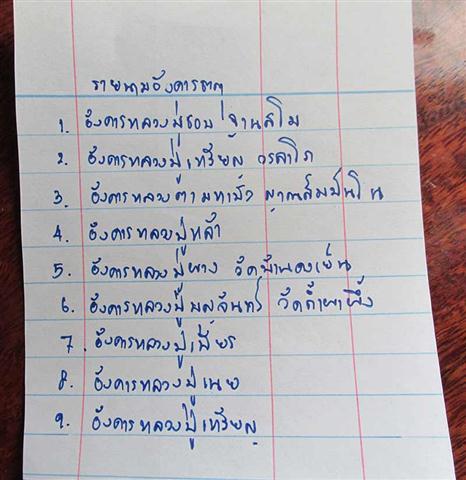 รายนามอังคารธาตุ
1. อังคารหลวงปู่ชอบ ฐานสโม
2. อังคารหลวงปู่เหรียญ วรลาโภ
3. อังคารหลวงตามหาบัว ญาณสัมปันโน
4. อังคารหลวงปู่หล้า
5. อังคารหลวงปู่ผาง วัดบ้านดงเย็น
6. อังคารหลวงปู่บุญจันทร์ วัดถ้ำผาผึ้ง
7. อังคารหลวงปู่เพียร
8. อังคารหลวงปู่เนย
9. อังคารหลวงปู่เหรียญ